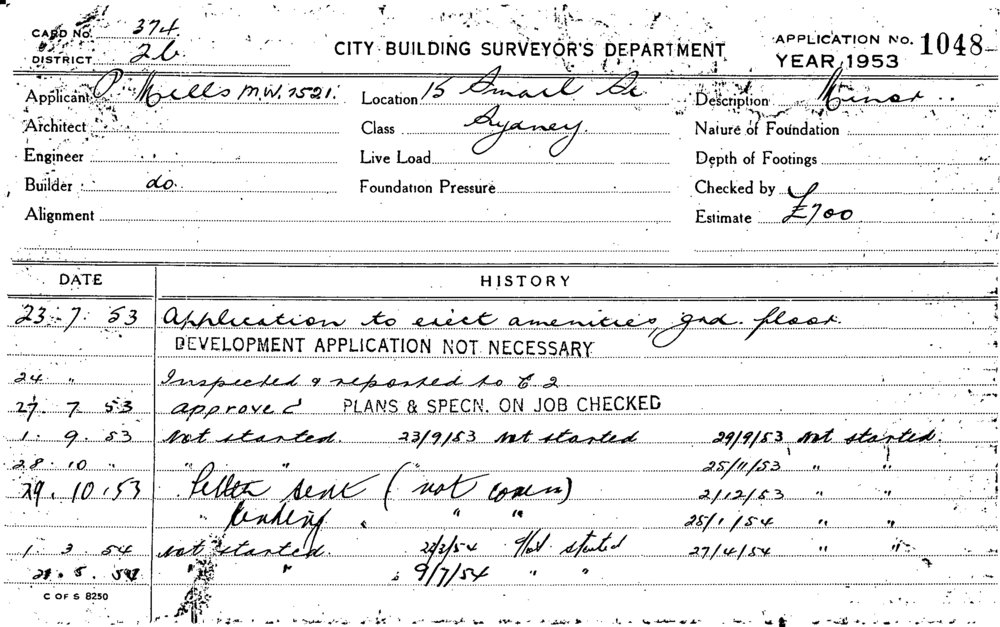 CARD No. 374.
DISTRICT 26
CITY BUILDING SURVEYOR'S DEPARTMENT
APPLICATION No. 1048
YEAR 1953
Applicant P. Mills M.W. 1521. Location 15 Smail St. Description Minor
Architect Class Sydney. Nature of Foundation
Engineer Live Load Depth of Footings
Builder do. Foundation Pressure Checked by
Alignment Estimate £700
DATE HISTORY
23. 7. 53 Application to erect amenities, grd. floor.
DEVELOPMENT APPLICATION NOT NECESSARY
24 " Inspected & reported to
27. 7. 53 approved PLANS & SPECN. ON JOB CHECKED
1. 9. 53 Not started. 23/9/53 Not started 29/9/53 Not started.
28. 10 " " " 25/11/53 " "
29. 10. 53 Letter sent (not comm) 2/12/53 " "
" pending " " 25/1/54 " "
1. 3. 54 Not started. Not started 27/4/54 " "
5. 54 " " 9/7/54 " "
C OF S 8250